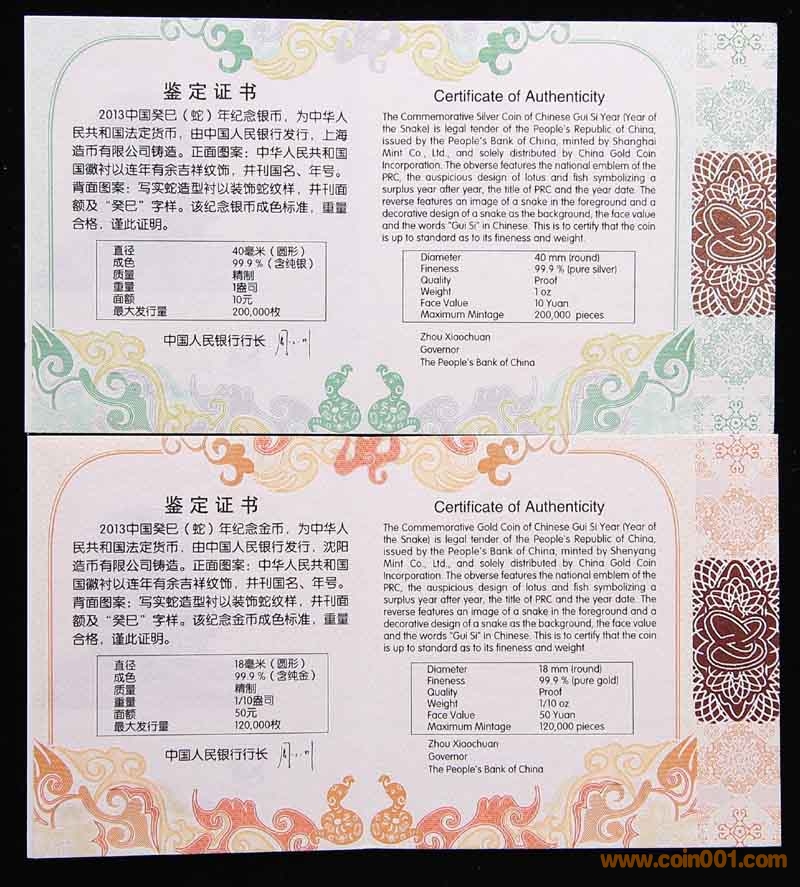 鉴定证书
2013中国癸巳（蛇）年纪念银币，为中华人
民共和国法定货币，由中国人民银行发行，上海
造币有限公司铸造。正面图案：中华人民共和国
国徽衬以连年有余吉祥纹饰，并刊国名、年号。
背面图案：写实蛇造型衬以装饰蛇纹样，并刊面
额及“癸巳”字样。该纪念银币成色标准，重量
合格，谨此证明。
直径 40毫米（圆形）
成色 99.9％（含纯银）
质量 精制
重量 1盎司
面额 10元
最大发行量 200,000枚
中国人民银行行长
Certificate of Authenticity
The Commemorative Silver Coin of Chinese Gui Si Year (Year of
the Snake) is legal tender of the People's Republic of China,
issued by the People's Bank of China, minted by Shanghai
Mint Co., Ltd., and solely distributed by China Gold Coin
Incorporation. The obverse features the national emblem of the
PRC, the auspicious design of lotus and fish symbolizing a
surplus year after year, the title of PRC and the year date. The
reverse features an image of a snake in the foreground and a
decorative design of a snake as the background, the face value
and the words "Gui Si" in Chinese. This is to certify that the coin
is up to standard as to its fineness and weight.
Diameter 40 mm (round)
Fineness 99.9 % (pure silver)
Quality Proof
Weight 1 oz
Face Value 10 Yuan
Maximum Mintage 200,000 pieces
Zhou Xiaochuan
Governor
The People's Bank of China
鉴定证书
2013中国癸巳（蛇）年纪念金币，为中华人
民共和国法定货币，由中国人民银行发行，沈阳
造币有限公司铸造。正面图案：中华人民共和国
国徽衬以连年有余吉祥纹饰，并刊国名、年号。
背面图案：写实蛇造型衬以装饰蛇纹样，并刊面
额及“癸巳”字样。该纪念金币成色标准，重量
合格，谨此证明。
直径 18毫米（圆形）
成色 99.9％（含纯金）
质量 精制
重量 1/10盎司
面额 50元
最大发行量 120,000枚
中国人民银行行长
Certificate of Authenticity
The Commemorative Gold Coin of Chinese Gui Si Year (Year of
the Snake) is legal tender of the People's Republic of China,
issued by the People's Bank of China, minted by Shenyang
Mint Co., Ltd., and solely distributed by China Gold Coin
Incorporation. The obverse features the national emblem of the
PRC, the auspicious design of lotus and fish symbolizing a
surplus year after year, the title of PRC and the year date. The
reverse features an image of a snake in the foreground and a
decorative design of a snake as the background, the face value
and the words "Gui Si" in Chinese. This is to certify that the coin
is up to standard as to its fineness and weight.
Diameter 18 mm (round)
Fineness 99.9 % (pure gold)
Quality Proof
Weight 1/10 oz
Face Value 50 Yuan
Maximum Mintage 120,000 pieces
Zhou Xiaochuan
Governor
The People's Bank of China
www.coin001.com